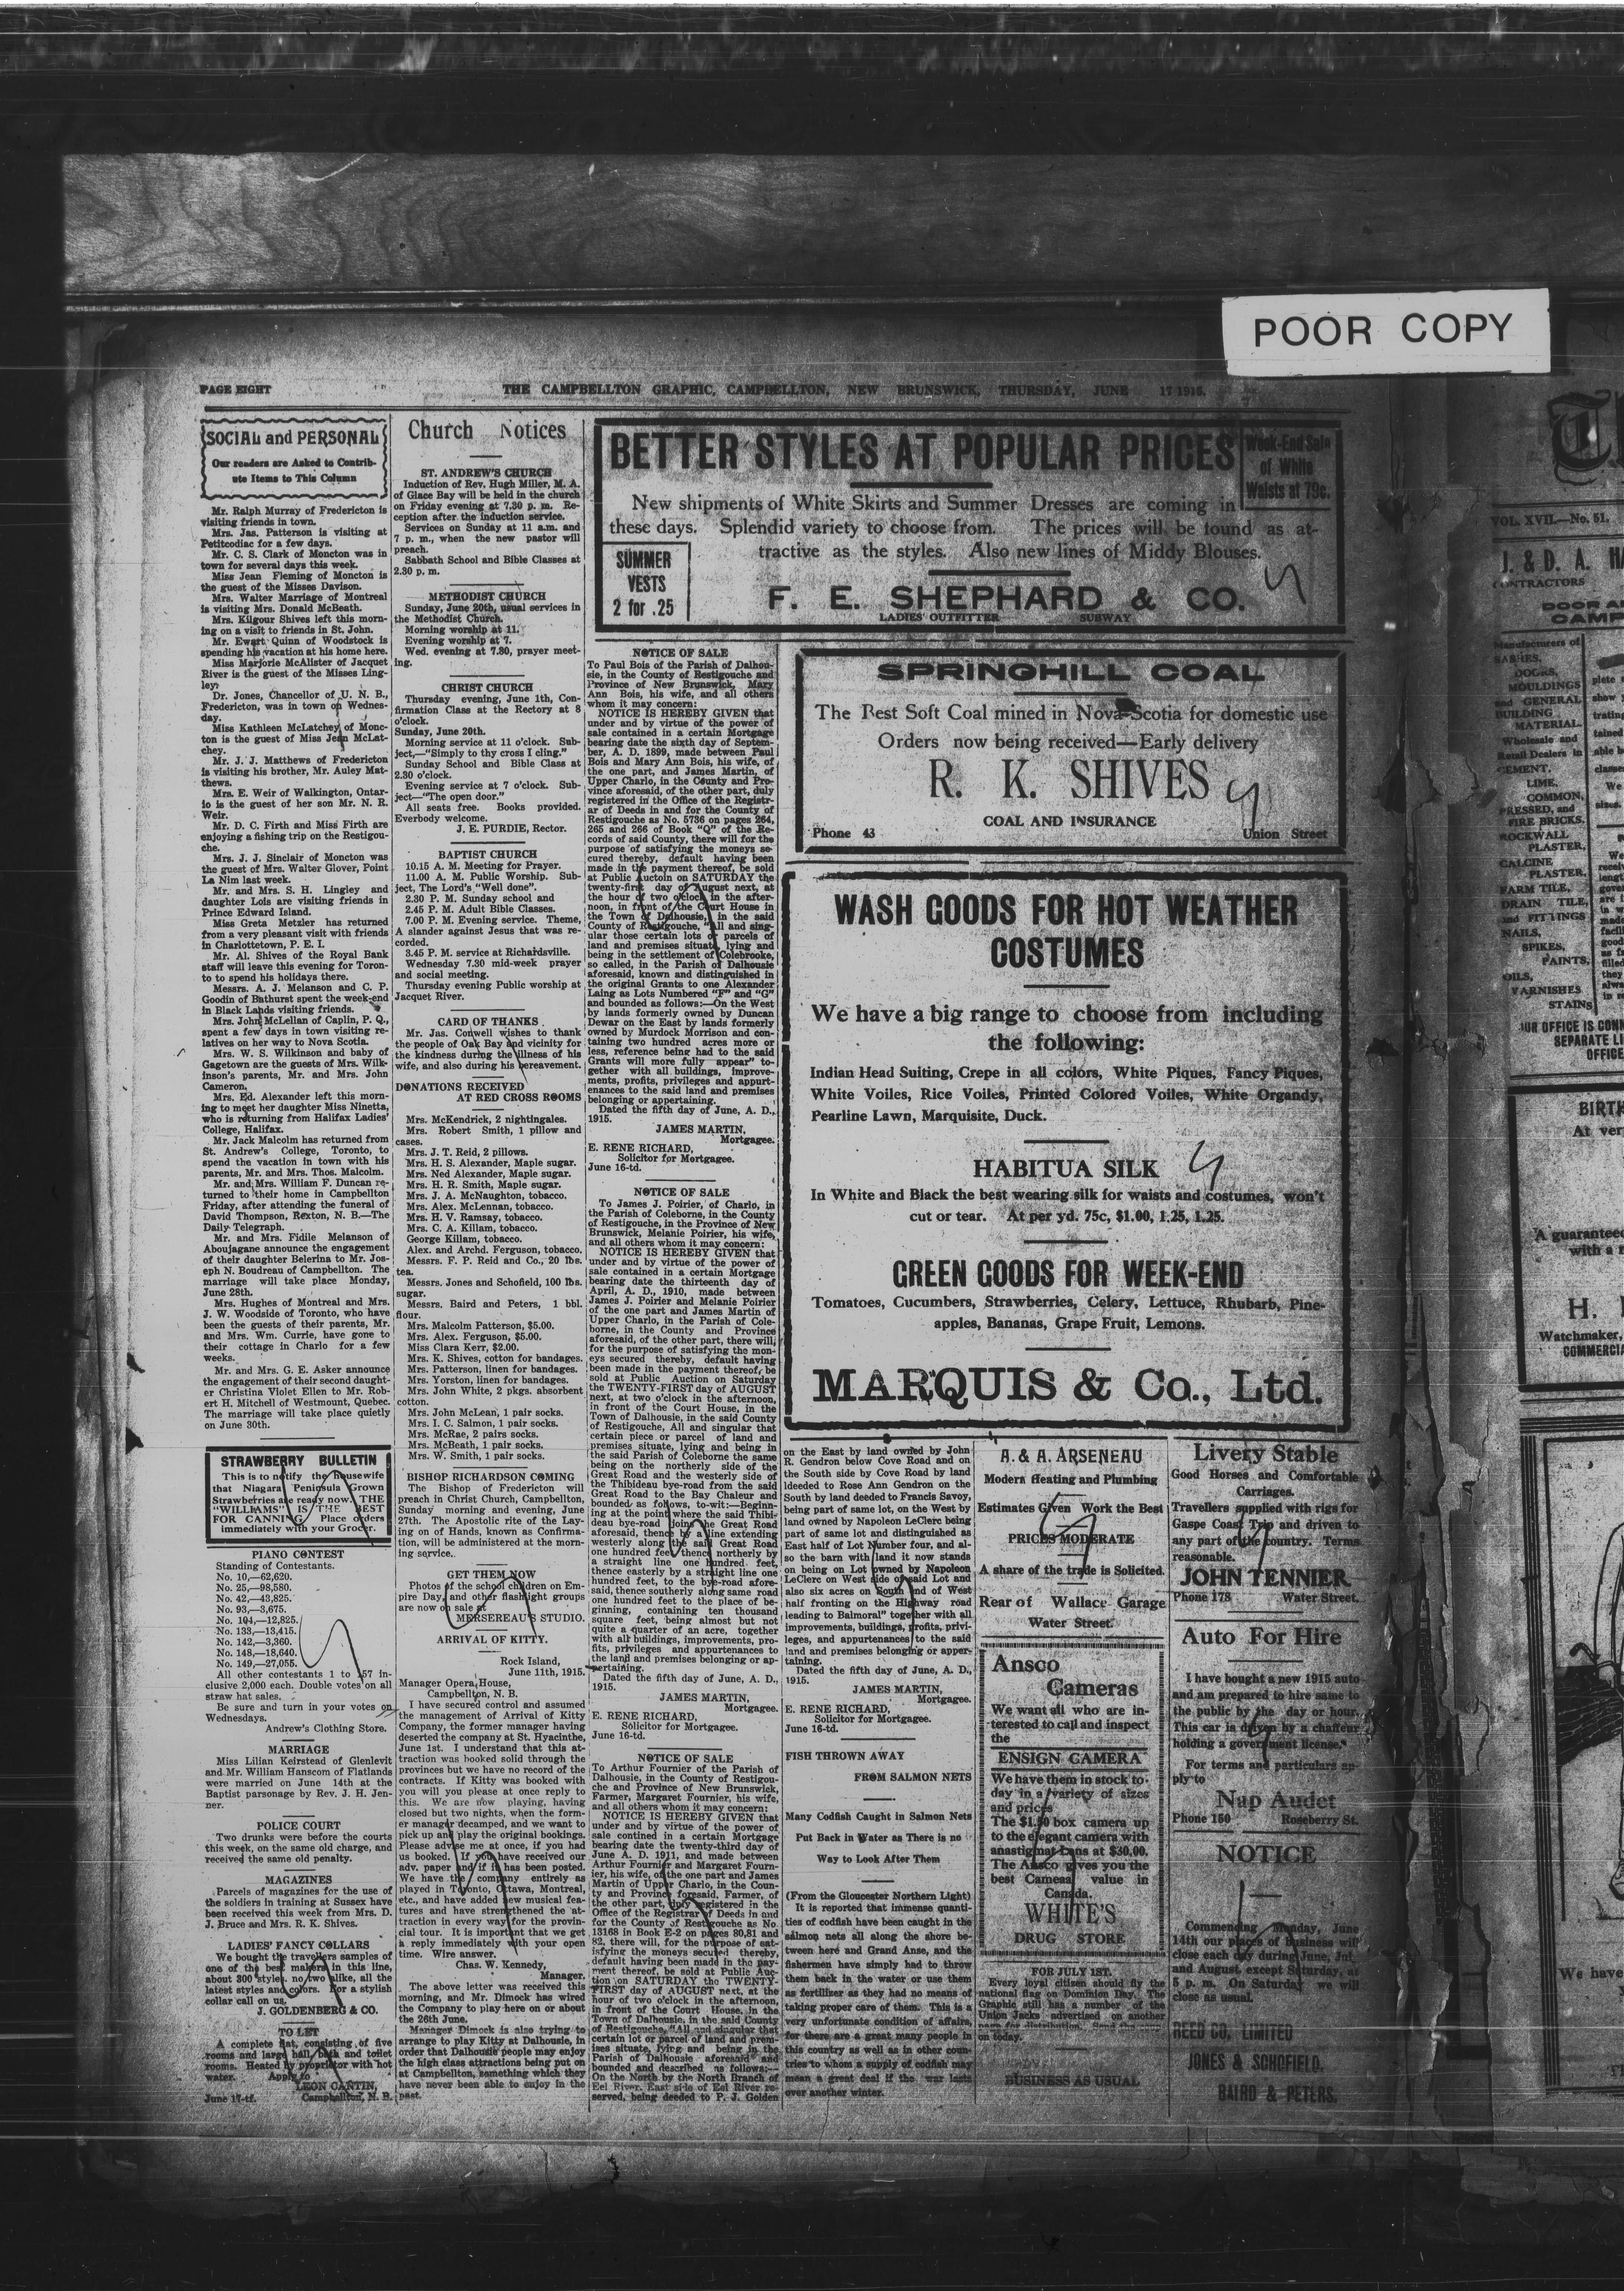 POOR COPY
PAGE EIGHT
THE CAMPBELLTON GRAPHIC, CAMPBELLTON, NEW BRUNSWICK, THURSDAY, JUNE 17 1915.
SOCIAL and PERSONAL
Our readers are Asked to Contrib-
ute Items to This Column
Mr. Ralph Murray of Fredericton is
visiting friends in town.
Mrs. Jas. Patterson is visiting at
Petitcodiac for a few days.
Mr. C. S. Clark of Moncton was in
town for several days this week.
Miss Jean Fleming of Moncton is
the guest of the Misses Davison.
Mrs. Walter Marriage of Montreal
is visiting Mrs. Donald McBeath.
Mrs. Kilgour Shives left this morn-
ing on a visit to friends in St. John.
Mr. Ewart Quinn of Woodstock is
spending his vacation at his home here.
Miss Marjorie McAlister of Jacquet
River is the guest of the Misses Ling-
ley.
Dr. Jones, Chancellor of U. N. B.,
Fredericton, was in town on Wednes-
day.
Miss Kathleen McLatchey of Monc-
ton is the guest of Miss Jean McLat-
chey.
Mr. J. J. Matthews of Fredericton
is visiting his brother, Mr. Auley Mat-
thews.
Mrs. E. Weir of Walkington, Ontar-
io is the guest of her son Mr. N. R.
Weir.
Mr. D. C. Firth and Miss Firth are
enjoying a fishing trip on the Restigou-
che.
Mrs. J. J. Sinclair of Moncton was
the guest of Mrs. Walter Glover, Point
La Nim last week.
Mr. and Mrs. S. H. Lingley and
daughter Lois are visiting friends in
Prince Edward Island.
Miss Greta Metzler has returned
from a very pleasant visit with friends
in Charlottetown, P. E. I.
Mr. Al. Shives of the Royal Bank
staff will leave this evening for Toron-
to to spend his holidays there.
Messrs. A. J. Melanson and C. P.
Goodin of Bathurst spent the week-end
in Black Lands visiting friends.
Mrs. John McLellan of Caplin, P. Q.,
spent a few days in town visiting re-
latives on her way to Nova Scotia.
Mrs. W. S. Wilkinson and baby of
Gagetown are the guests of Mrs. Wilk-
inson's parents, Mr. and Mrs. John
Cameron.
Mrs. Ed. Alexander left this morn-
ing to meet her daughter Miss Ninetta,
who is returning from Halifax Ladies'
College, Halifax.
Mr. Jack Malcolm has returned from
St. Andrew's College, Toronto, to
spend the vacation in town with his
parents, Mr. and Mrs. Thos. Malcolm.
Mr. and Mrs. William F. Duncan re-
turned to their home in Campbellton
Friday, after attending the funeral of
David Thompson, Rexton, N. B.—The
Daily Telegraph.
Mr. and Mrs. Fidile Melanson of
Aboujagane announce the engagement
of their daughter Belerina to Mr. Jos-
eph N. Boudreau of Campbellton. The
marriage will take place Monday,
June 28th.
Mrs. Hughes of Montreal and Mrs.
J. W. Woodside of Toronto, who have
been the guests of their parents, Mr.
and Mrs. Wm. Currie, have gone to
their cottage in Charlo for a few
weeks.
Mr. and Mrs. G. E. Asker announce
the engagement of their second daught-
er Christina Violet Ellen to Mr. Rob-
ert H. Mitchell of Westmount, Quebec.
The marriage will take place quietly
on June 30th.
STRAWBERRY BULLETIN
This is to notify the housewife
that Niagara Peninsula Grown
Strawberries are ready now. THE
"WILLIAMS" IS THE BEST
FOR CANNING. Place orders
immediately with your Grocer.
PIANO CONTEST
Standing of Contestants.
No. 10,—62,620.
No. 25,—98,580.
No. 42,—43,825.
No. 93,—3,675.
No. 104,—12,825.
No. 133,—13,415.
No. 142,—3,360.
No. 148,—18,640.
No. 149,—27,055.
All other contestants 1 to 157 in-
clusive 2,000 each. Double votes on all
straw hat sales.
Be sure and turn in your votes on
Wednesdays.
Andrew's Clothing Store.
MARRIAGE
Miss Lilian Keirstead of Glenlevit
and Mr. William Hanscom of Flatlands
were married on June 14th at the
Baptist parsonage by Rev. J. H. Jen-
ner.
POLICE COURT
Two drunks were before the courts
this week, on the same old charge, and
received the same old penalty.
MAGAZINES
Parcels of magazines for the use of
the soldiers in training at Sussex have
been received this week from Mrs. D.
J. Bruce and Mrs. R. K. Shives.
LADIES' FANCY COLLARS
We bought the travellers samples of
one of the best makers in this line,
about 300 styles, no two alike, all the
latest styles and colors. For a stylish
collar call on us.
J. GOLDENBERG & CO.
TO LET
A complete flat, consisting of five
rooms and large hall, bath and toilet
rooms. Heated by proprietor with hot
water. Apply to
LEON CANTIN,
June 17-tf. Campbellton, N. B.
Church Notices
ST. ANDREW'S CHURCH
Induction of Rev. Hugh Miller, M. A.
of Glace Bay will be held in the church
on Friday evening at 7.30 p. m. Re-
ception after the induction service.
Services on Sunday at 11 a.m. and
7 p. m., when the new pastor will
preach.
Sabbath School and Bible Classes at
2.30 p. m.
METHODIST CHURCH
Sunday, June 20th, usual services in
the Methodist Church.
Morning worship at 11.
Evening worship at 7.
Wed. evening at 7.30, prayer meet-
ing.
CHRIST CHURCH
Thursday evening, June 1th, Con-
firmation Class at the Rectory at 8
o'clock.
Sunday, June 20th.
Morning service at 11 o'clock. Sub-
ject,—"Simply to thy cross I cling."
Sunday School and Bible Class at
2.30 o'clock.
Evening service at 7 o'clock. Sub-
ject—"The open door."
All seats free. Books provided.
Everbody welcome.
J. E. PURDIE, Rector.
BAPTIST CHURCH
10.15 A. M. Meeting for Prayer.
11.00 A. M. Public Worship. Sub-
ject, The Lord's "Well done".
2.30 P. M. Sunday school and
2.45 P. M. Adult Bible Classes.
7.00 P. M. Evening service. Theme,
A slander against Jesus that was re-
corded.
3.45 P. M. service at Richardsville.
Wednesday 7.30 mid-week prayer
and social meeting.
Thursday evening Public worship at
Jacquet River.
CARD OF THANKS
Mr. Jas. Conwell wishes to thank
the people of Oak Bay and vicinity for
the kindness during the illness of his
wife, and also during his bereavement.
DONATIONS RECEIVED
AT RED CROSS ROOMS
Mrs. McKendrick, 2 nightingales.
Mrs. Robert Smith, 1 pillow and
cases.
Mrs. J. T. Reid, 2 pillows.
Mrs. H. S. Alexander, Maple sugar.
Mrs. Ned Alexander, Maple sugar.
Mrs. H. R. Smith, Maple sugar.
Mrs. J. A. McNaughton, tobacco.
Mrs. Alex. McLennan, tobacco.
Mrs. H. V. Ramsay, tobacco.
Mrs. C. A. Killam, tobacco.
George Killam, tobacco.
Alex. and Archd. Ferguson, tobacco.
Messrs. F. P. Reid and Co., 20 lbs.
tea.
Messrs. Jones and Schofield, 100 lbs.
sugar.
Messrs. Baird and Peters, 1 bbl.
flour.
Mrs. Malcolm Patterson, $5.00.
Mrs. Alex. Ferguson, $5.00.
Miss Clara Kerr, $2.00.
Mrs. K. Shives, cotton for bandages.
Mrs. Patterson, linen for bandages.
Mrs. Yorston, linen for bandages.
Mrs. John White, 2 pkgs. absorbent
cotton.
Mrs. John McLean, 1 pair socks.
Mrs. I. C. Salmon, 1 pair socks.
Mrs. McRae, 2 pairs socks.
Mrs. McBeath, 1 pair socks.
Mrs. W. Smith, 1 pair socks.
BISHOP RICHARDSON COMING
The Bishop of Fredericton will
preach in Christ Church, Campbellton,
Sunday morning and evening, June
27th. The Apostolic rite of the Lay-
ing on of Hands, known as Confirma-
tion, will be administered at the morn-
ing service.
GET THEM NOW
Photos of the school children on Em-
pire Day, and other flashlight groups
are now on sale at
MERSEREAU'S STUDIO.
ARRIVAL OF KITTY.
Rock Island,
June 11th, 1915.
Manager Opera House,
Campbellton, N. B.
I have secured control and assumed
the management of Arrival of Kitty
Company, the former manager having
deserted the company at St. Hyacinthe,
June 1st. I understand that this at-
traction was booked solid through the
provinces but we have no record of the
contracts. If Kitty was booked with
you will you please at once reply to
this. We are now playing, having
closed but two nights, when the form-
er manager decamped, and we want to
pick up and play the original bookings.
Please advise me at once, if you had
us booked. If you have received our
adv. paper and if it has been posted.
We have the company entirely as
played in Toronto, Ottawa, Montreal,
etc., and have added new musical fea-
tures and have strengthened the at-
traction in every way for the provin-
cial tour. It is important that we get
a reply immediately with your open
time. Wire answer.
Chas. W. Kennedy,
Manager.
The above letter was received this
morning, and Mr. Dimock has wired
the Company to play here on or about
the 26th June.
Manager Dimock is also trying to
arrange to play Kitty at Dalhousie, in
order that Dalhousie people may enjoy
the high class attractions being put on
at Campbellton, something which they
have never been able to enjoy in the
past.
BETTER STYLES AT POPULAR PRICES
Week-End Sale
of White
Waists at 79c.
New shipments of White Skirts and Summer Dresses are coming in
these days. Splendid variety to choose from. The prices will be found as at-
tractive as the styles. Also new lines of Middy Blouses.
SUMMER
VESTS
2 for .25
F. E. SHEPHARD & CO.
LADIES' OUTFITTER SUBWAY
NOTICE OF SALE
To Paul Bois of the Parish of Dalhou-
sie, in the County of Restigouche and
Province of New Brunswick, Mary
Ann Bois, his wife, and all others
whom it may concern:
NOTICE IS HEREBY GIVEN that
under and by virtue of the power of
sale contained in a certain Mortgage
bearing date the sixth day of Septem-
ber, A. D. 1899, made between Paul
Bois and Mary Ann Bois, his wife, of
the one part, and James Martin, of
Upper Charlo, in the County and Pro-
vince aforesaid, of the other part, duly
registered in the Office of the Registr-
ar of Deeds in and for the County of
Restigouche as No. 5736 on pages 264,
265 and 266 of Book "Q" of the Re-
cords of said County, there will for the
purpose of satisfying the moneys se-
cured thereby, default having been
made in the payment thereof, be sold
at Public Auctoin on SATURDAY the
twenty-first day of August next, at
the hour of two o'clock in the after-
noon, in front of the Court House in
the Town of Dalhousie, in the said
County of Restigouche, "All and sing-
ular those certain lots or parcels of
land and premises situate, lying and
being in the settlement of Colebrooke,
so called, in the Parish of Dalhousie
aforesaid, known and distinguished in
the original Grants to one Alexander
Laing as Lots Numbered "F" and "G"
and bounded as follows:—On the West
by lands formerly owned by Duncan
Dewar on the East by lands formerly
owned by Murdock Morrison and con-
taining two hundred acres more or
less, reference being had to the said
Grants will more fully appear" to-
gether with all buildings, improve-
ments, profits, privileges and appurt-
enances to the said land and premises
belonging or appertaining.
Dated the fifth day of June, A. D.,
1915.
JAMES MARTIN,
Mortgagee.
E. RENE RICHARD,
Solicitor for Mortgagee.
June 16-td.
NOTICE OF SALE
To James J. Poirier, of Charlo, in
the Parish of Coleborne, in the County
of Restigouche, in the Province of New
Brunswick, Melanie Poirier, his wife,
and all others whom it may concern:
NOTICE IS HEREBY GIVEN that
under and by virtue of the power of
sale contained in a certain Mortgage
bearing date the thirteenth day of
April, A. D., 1910, made between
James J. Poirier and Melanie Poirier
of the one part and James Martin of
Upper Charlo, in the Parish of Cole-
borne, in the County and Province
aforesaid, of the other part, there will,
for the purpose of satisfying the mon-
eys secured thereby, default having
been made in the payment thereof, be
sold at Public Auction on Saturday
the TWENTY-FIRST day of AUGUST
next, at two o'clock in the afternoon,
in front of the Court House, in the
Town of Dalhousie, in the said County
of Restigouche, All and singular that
certain piece or parcel of land and
premises situate, lying and being in
the said Parish of Coleborne the same
being on the northerly side of the
Great Road and the westerly side of
the Thibideau bye-road from the said
Great Road to the Bay Chaleur and
bounded as follows, to-wit:—Beginn-
ing at the point where the said Thibi-
deau bye-road joins the Great Road
aforesaid, thence by a line extending
westerly along the said Great Road
one hundred feet, thence northerly by
a straight line one hundred feet,
thence easterly by a straight line one
hundred feet, to the bye-road afore-
said, thence southerly along same road
one hundred feet to the place of be-
ginning, containing ten thousand
square feet, being almost but not
quite a quarter of an acre, together
with all buildings, improvements, pro-
fits, privileges and appurtenances to
the land and premises belonging or ap-
pertaining.
Dated the fifth day of June, A. D.,
1915.
JAMES MARTIN,
Mortgagee.
E. RENE RICHARD,
Solicitor for Mortgagee.
June 16-td.
NOTICE OF SALE
To Arthur Fournier of the Parish of
Dalhousie, in the County of Restigou-
che and Province of New Brunswick,
Farmer, Margaret Fournier, his wife,
and all others whom it may concern:
NOTICE IS HEREBY GIVEN that
under and by virtue of the power of
sale contined in a certain Mortgage
bearing date the twenty-third day of
June A. D. 1911, and made between
Arthur Fournier and Margaret Fourn-
ier, his wife, of the one part and James
Martin of Upper Charlo, in the Coun-
ty and Province foresaid, Farmer, of
the other part, duly registered in the
Office of the Registrar of Deeds in and
for the County of Restigouche as No.
13168 in Book E-2 on pages 80,81 and
82, there will, for the purpose of sat-
isfying the moneys secured thereby,
default having been made in the pay-
ment thereof, be sold at Public Auc-
tion on SATURDAY the TWENTY-
FIRST day of AUGUST next, at the
hour of two o'clock in the afternoon,
in front of the Court House, in the
Town of Dalhousie, in the said County
of Restigouche, "All and singular that
certain lot or parcel of land and prem-
ises situate, lying and being in the
Parish of Dalhousie aforesaid" and
bounded and described as follows:—
On the North by the North Branch of
Eel River, East side of Eel River re-
served, being deeded to P. J. Golden
SPRINGHILL COAL
The Best Soft Coal mined in Nova Scotia for domestic use
Orders now being received—Early delivery
R. K. SHIVES
COAL AND INSURANCE
Phone 43 Union Street
WASH GOODS FOR HOT WEATHER
COSTUMES
We have a big range to choose from including
the following:
Indian Head Suiting, Crepe in all colors, White Piques, Fancy Piques,
White Voiles, Rice Voiles, Printed Colored Voiles, White Organdy,
Pearline Lawn, Marquisite, Duck.
HABITUA SILK
In White and Black the best wearing silk for waists and costumes, won't
cut or tear. At per yd. 75c, $1.00, 1.25, 1.25.
GREEN GOODS FOR WEEK-END
Tomatoes, Cucumbers, Strawberries, Celery, Lettuce, Rhubarb, Pine-
apples, Bananas, Grape Fruit, Lemons.
MARQUIS & Co., Ltd.
on the East by land owned by John
R. Gendron below Cove Road and on
the South side by Cove Road by land
ldeeded to Rose Ann Gendron on the
South by land deeded to Francis Savoy,
being part of same lot, on the West by
land owned by Napoleon LeClerc being
part of same lot and distinguished as
East half of Lot Number four, and al-
so the barn with land it now stands
on being on Lot owned by Napoleon
LeClerc on West side of said Lot and
also six acres on South end of West
half fronting on the Highway road
leading to Balmoral" together with all
improvements, buildings, profits, privi-
leges, and appurtenances to the said
land and premises belonging or apper-
taining.
Dated the fifth day of June, A. D.,
1915.
JAMES MARTIN,
Mortgagee.
E. RENE RICHARD,
Solicitor for Mortgagee.
June 16-td.
FISH THROWN AWAY
FROM SALMON NETS
Many Codfish Caught in Salmon Nets
Put Back in Water as There is no
Way to Look After Them
(From the Gloucester Northern Light)
It is reported that immense quanti-
ties of codfish have been caught in the
salmon nets all along the shore be-
tween here and Grand Anse, and the
fishermen have simply had to throw
them back in the water or use them
as fertilizer as they had no means of
taking proper care of them. This is a
very unfortunate condition of affairs,
for there are a great many people in
this country as well as in other coun-
tries to whom a supply of codfish may
mean a great deal if the war lasts
over another winter.
A. & A. ARSENEAU
Modern Heating and Plumbing
Estimates Given Work the Best
PRICES MODERATE
A share of the trade is Solicited.
Rear of Wallace Garage
Water Street.
Ansco
Cameras
We want all who are in-
terested to call and inspect
the
ENSIGN CAMERA
We have them in stock to-
day in a variety of sizes
and prices
The $1.50 box camera up
to the elegant camera with
anastigmat Lens at $30.00.
The Ansco gives you the
best Cameas value in
Canada.
WHITE'S
DRUG STORE
FOR JULY 1ST.
Every loyal citizen should fly the
national flag on Dominion Day. The
Graphic still has a number of the
Union Jacks advertised on another
page for distribution. Send the
on today.
BUSINESS AS USUAL
Livery Stable
Good Horses and Comfortable
Carriages.
Travellers supplied with rigs for
Gaspe Coast Trip and driven to
any part of the country. Terms
reasonable.
JOHN TENNIER
Phone 178 Water Street.
Auto For Hire
I have bought a new 1915 auto
and am prepared to hire same to
the public by the day or hour.
This car is driven by a chaffeur
holding a government license.
For terms and particulars ap-
ply to
Nap Audet
Phone 150 Roseberry St.
NOTICE
Commencing Monday, June
14th our places of business will
close each day during June, Jul
and August, except Saturday, at
5 p. m. On Saturday we will
close as usual.
REED CO, LIMITED
JONES & SCHOFIELD,
BAIRD & PETERS.
VOL. XVII.—No. 51.
J. & D. A. HA
CONTRACTORS
DOOR A
CAMP
Manufacturers of
SASHES,
DOORS,
MOULDINGS
and GENERAL
BUILDING
MATERIAL.
Wholesale and
Retail Dealers in
CEMENT,
LIME,
COMMON,
PRESSED, and
FIRE BRICKS,
ROCKWALL
PLASTER,
CALCINE
PLASTER,
FARM TILE,
DRAIN TILE,
and FITTINGS
NAILS,
SPIKES,
PAINTS,
OILS,
VARNISHES
STAINS
OUR OFFICE IS CONN
SEPARATE LI
OFFICE
BIRTH
At ver
A guarantee
with a r
H.
Watchmaker,
COMMERCIA
We have